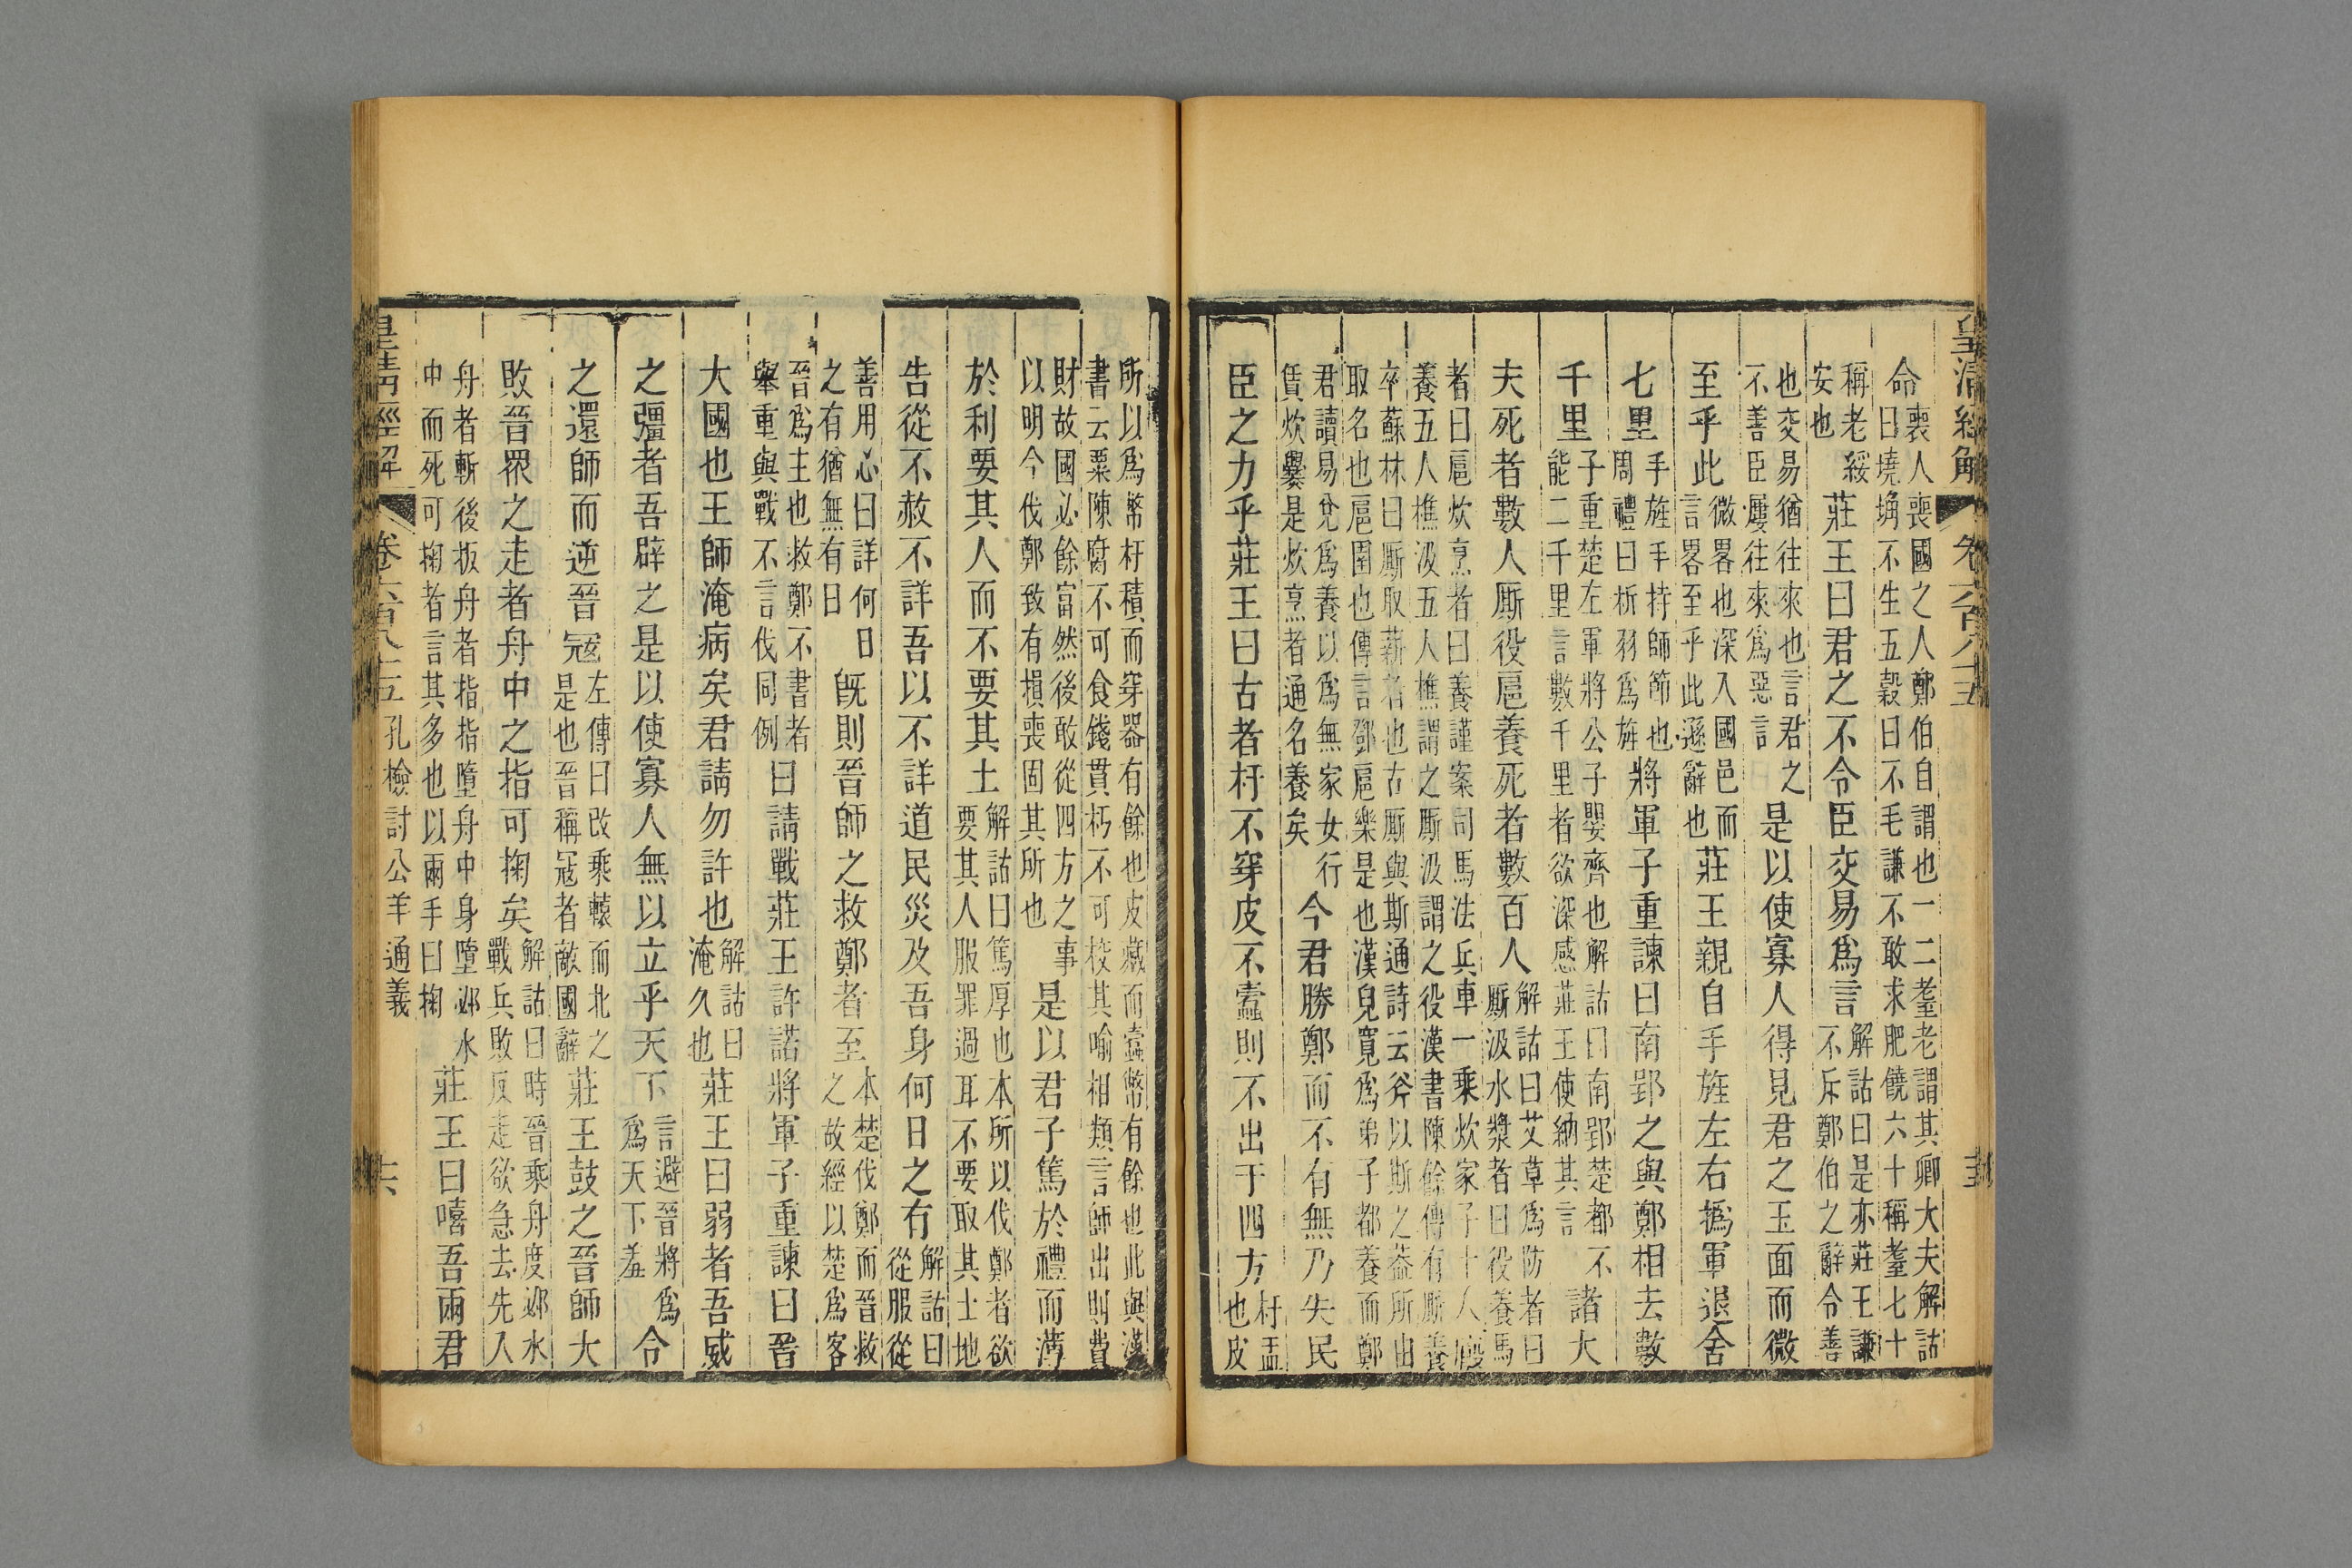 皇清經解 卷六百八十五
命喪人喪國之人鄭伯自謂也一二耋老謂其卿大夫解詁
曰墝埆不生五穀曰不毛謙不敢求肥饒六十稱耋七十
稱老綏
安也莊王曰君之不令臣交易爲言解詁曰是亦莊王謙
不斥鄭伯之辭令善
也交易猶往來也言君之
不善臣屢往來爲惡言是以使寡人得見君之玉面而微
至乎此微畧也深入國邑而
言畧至乎此遜辭也莊王親自手旌左右撝軍退舍
七里手旌手持師節也
周禮曰析羽爲旌將軍子重諫曰南郢之與鄭相去數
千里子重楚左軍將公子嬰齊也解詁曰南郢楚都不
能二千里言數千里者欲深感莊王使納其言諸大
夫死者數人廝役扈養死者數百人解詁曰艾草爲防者曰
廝汲水漿者曰役養馬
者曰扈炊烹者曰養謹案司馬法兵車一乘炊家子十人
養五人樵汲五人樵謂之廝汲謂之役漢書陳餘傳有廝養
卒蘇林曰廝取薪者也古廝與斯通詩云斧以斯之葢所由
取名也扈圉也傳言鄧扈樂是也漢兒寬爲弟子都養而鄭
君讀易兌爲養以爲無家女行
賃炊爨是炊烹者通名養矣今君勝鄭而不有無乃失民
臣之力乎莊王曰古者杅不穿皮不蠹則不出于四方杅盂
也皮
所以爲幣杅積而穿器有餘也皮藏而蠹幣有餘也此與漢
書云粟陳腐不可食錢貫朽不可校其喻相類言師出則費
財故國必餘富然後敢從四方之事
以明今伐鄭致有損喪固其所也是以君子篤於禮而薄
於利要其人而不要其土解詁曰篤厚也本所以伐鄭者欲
要其人服罪過耳不要取其土地
告從不赦不詳吾以不詳道民災及吾身何日之有解詁曰
從服從
善用心曰詳何日
之有猶無有日旣則晉師之救鄭者至本楚伐鄭而晉救
之故經以楚爲客
晉爲主也救鄭不書者
舉重與戰不言伐同例曰請戰莊王許諾將軍子重諫曰晉
大國也王師淹病矣君請勿許也解詁曰
淹久也莊王曰弱者吾威
之彊者吾辟之是以使寡人無以立乎天下言避晉將爲
爲天下羞令
之還師而逆晉寇左傳曰改乘轅而北之
是也晉稱寇者敵國辭莊王鼓之晉師大
敗晉衆之走者舟中之指可掬矣解詁曰時晉乘舟度邲水
戰兵敗反走欲急去先入
舟者斬後扳舟者指指墮舟中身墮邲水
中而死可掬者言其多也以兩手曰掬莊王曰嘻吾兩君
皇清經解 卷六百八十五 孔檢討公羊通義